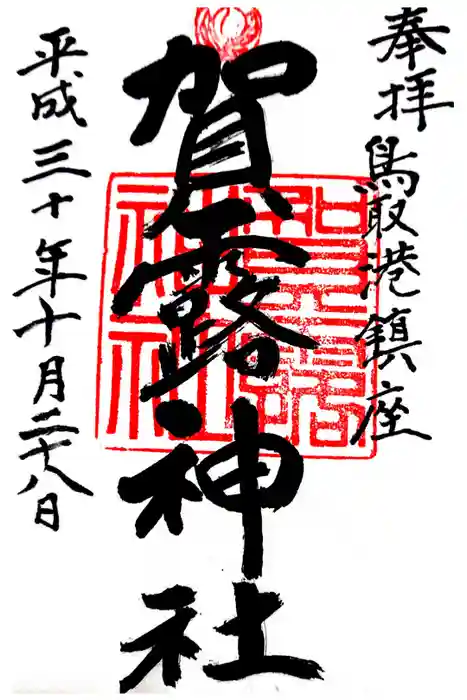 奉拝
鳥取港鎮座
賀露神社
賀露
神社
平成三十年十月二十八日